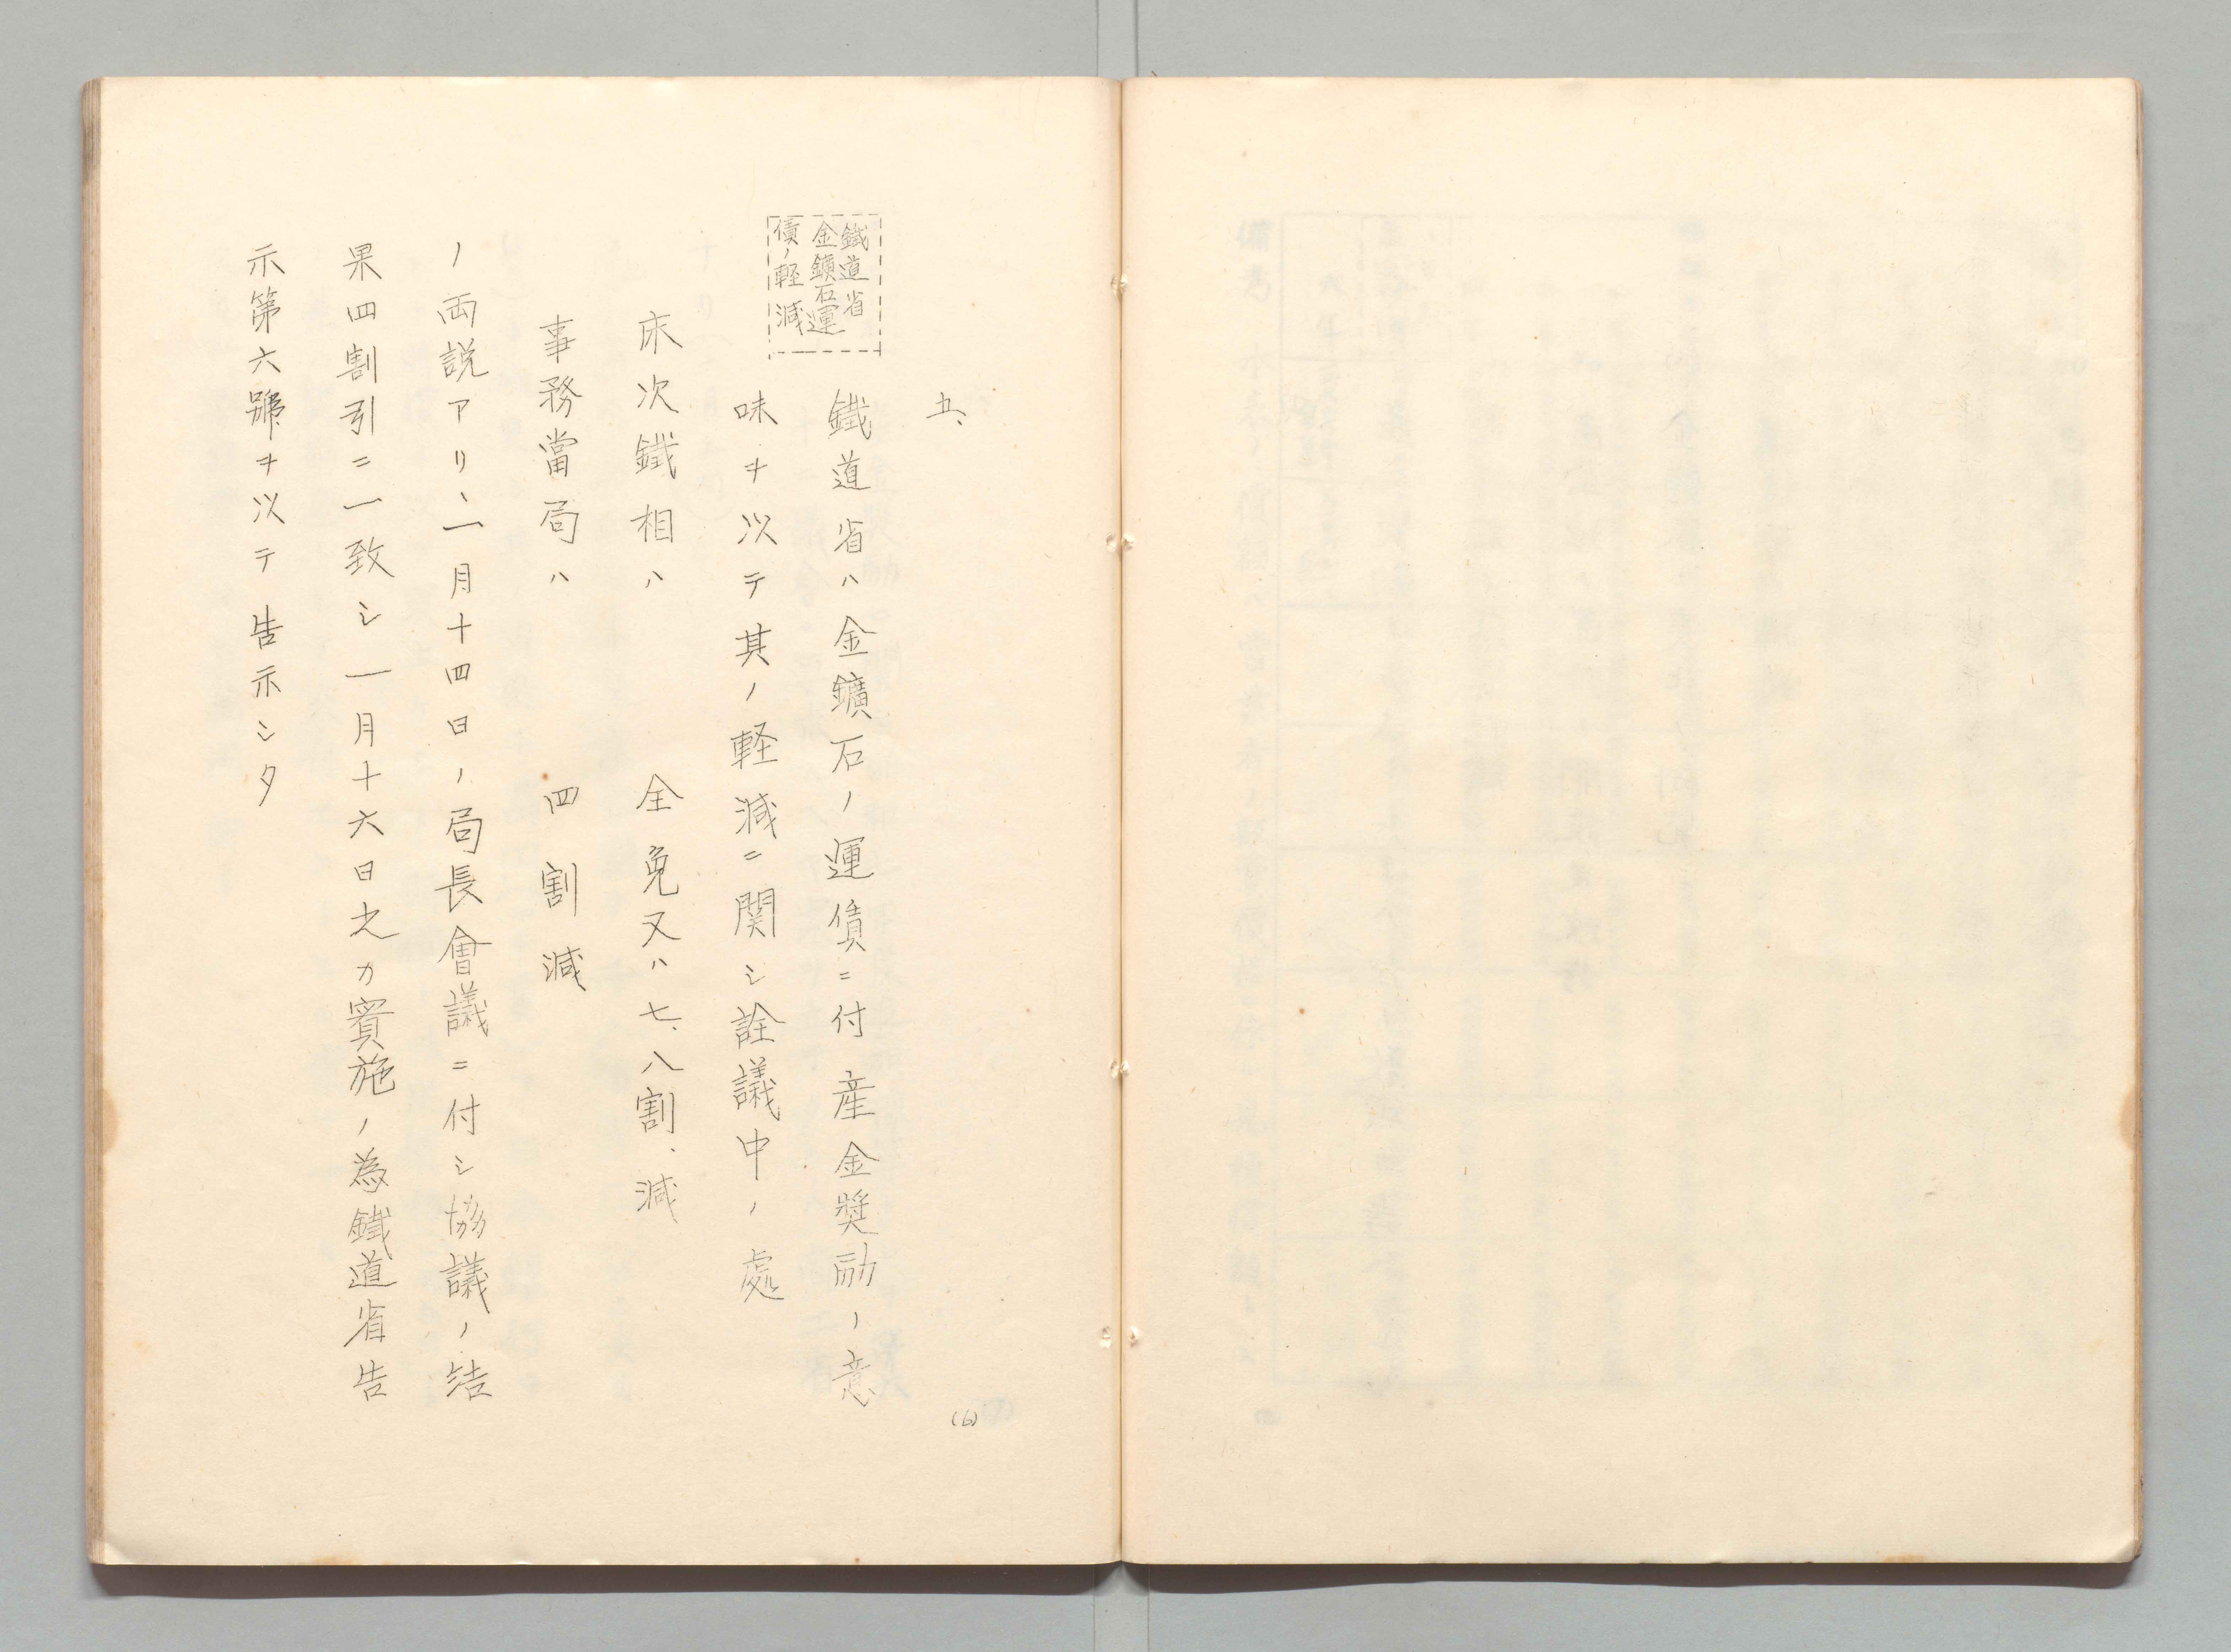 五、
鐵道省
金鑛石運
債ノ軽減
鐵道省ハ金鑛石ノ運賃ニ付産金奨励ノ意
味ヲ以テ其ノ軽減ニ関シ詮議中ノ處
床次鐵相ハ 全免又ハ七、八割、減
事務當局ハ 四割減
ノ両説アリ、一月十四日ノ局長會議ニ付シ協議ノ結
果四割引ニ一致シ一月十六日之カ實施ノ為鐵道省告
示第六號ヲ以テ告示シタ
(6)